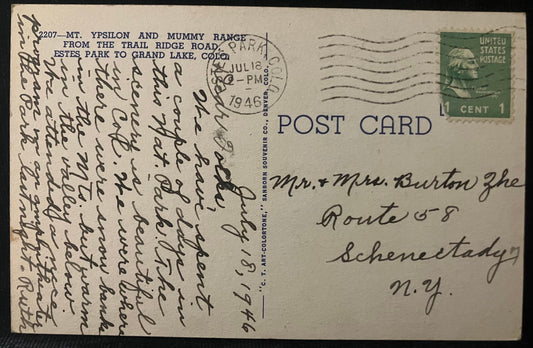 2207—MT. YPSILON AND MUMMY RANGE
FROM THE TRAIL RIDGE ROAD,
ESTES PARK TO GRAND LAKE, COLO.
July 18, 1946
Dear Folks,
We have spent
a couple of days in
this Nat. Park. The
scenery is beautiful
in Col. We were where
there were snow banks
in the Mts. but warm
in the valley below.
We attended a nice
program in
in the Park last night. Ruth
"C. T. ART-COLORTONE," SANBORN SOUVENIR CO., DENVER, COLO.
PARK, COLO.
JUL 18
2-PM
1946
POST CARD
UNITED
STATES
POSTAGE
1 CENT 1
Mr. & Mrs. Burton
Route 58
Schenectady
N.Y.